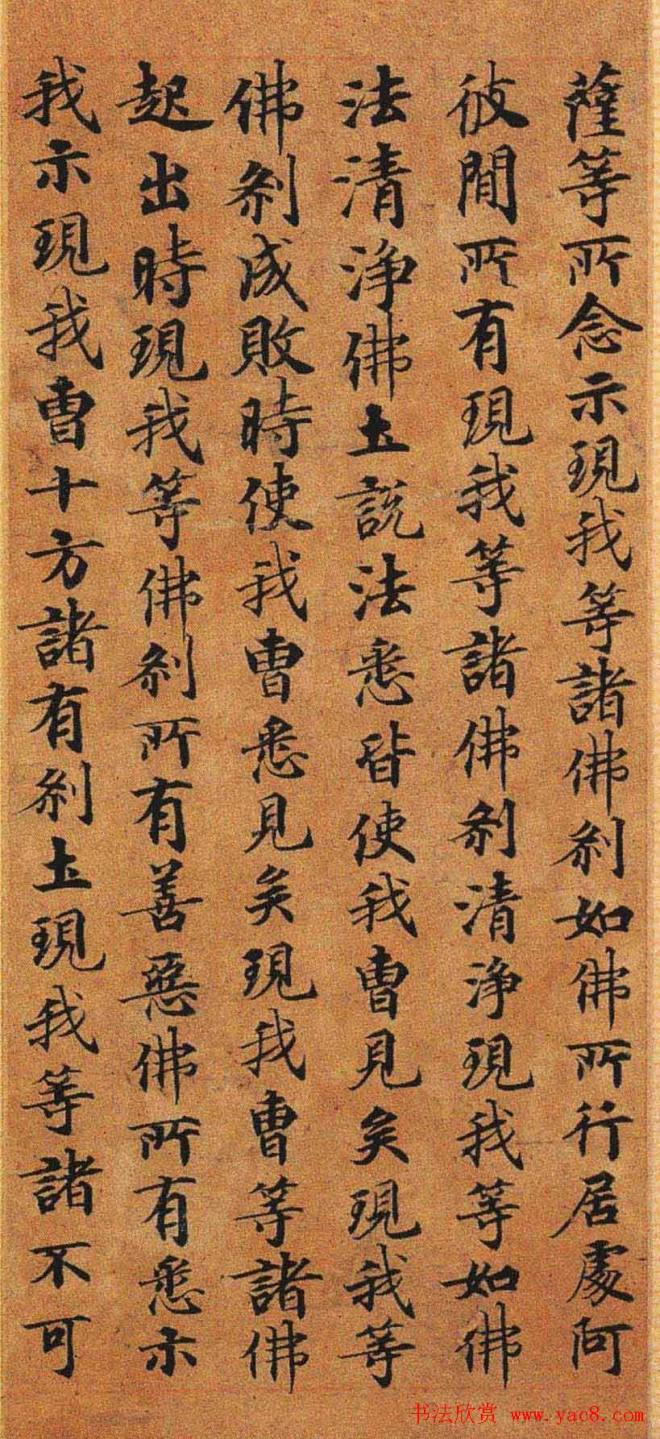 薩等所念示現我等諸佛刹如佛所行居處何
彼間所有現我等諸佛刹清淨現我等如佛
法清淨佛土說法悉皆使我曹見矣現我等
佛刹成敗時使我曹悉見矣現我曹等諸佛
起出時現我等佛刹所有善惡佛所有悉示
我示現我曹十方諸有刹土現我等諸不可
书法欣赏 www.yac8.com